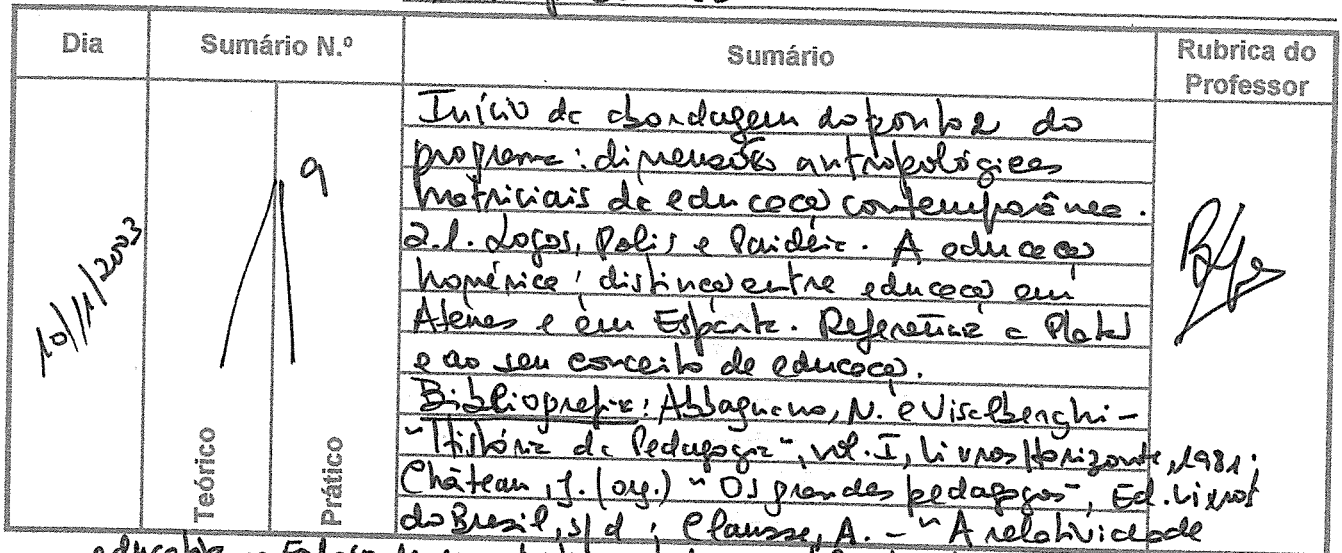 Dia Sumário N.º Sumário Rubrica do Professor
10/11/2003
9
Teórico
Prático
Início da abordagem do ponto 2 do
programa: dimensões antropológicas
matriciais da educação contemporânea.
2.1. Logos, Polis e Paideia. A educação
homérica; distinção entre educação em
Atenas e em Esparta. Referência a Platão
e ao seu conceito de educação.
Bibliografia: Abbagnano, N. e Visalberghi -
"História da Pedagogia", vol. I, Livros Horizonte, 1981;
Château, J. (org.) "Os grandes pedagogos", Ed. Livros
do Brasil, s/d; Clausse, A. - "A relatividade